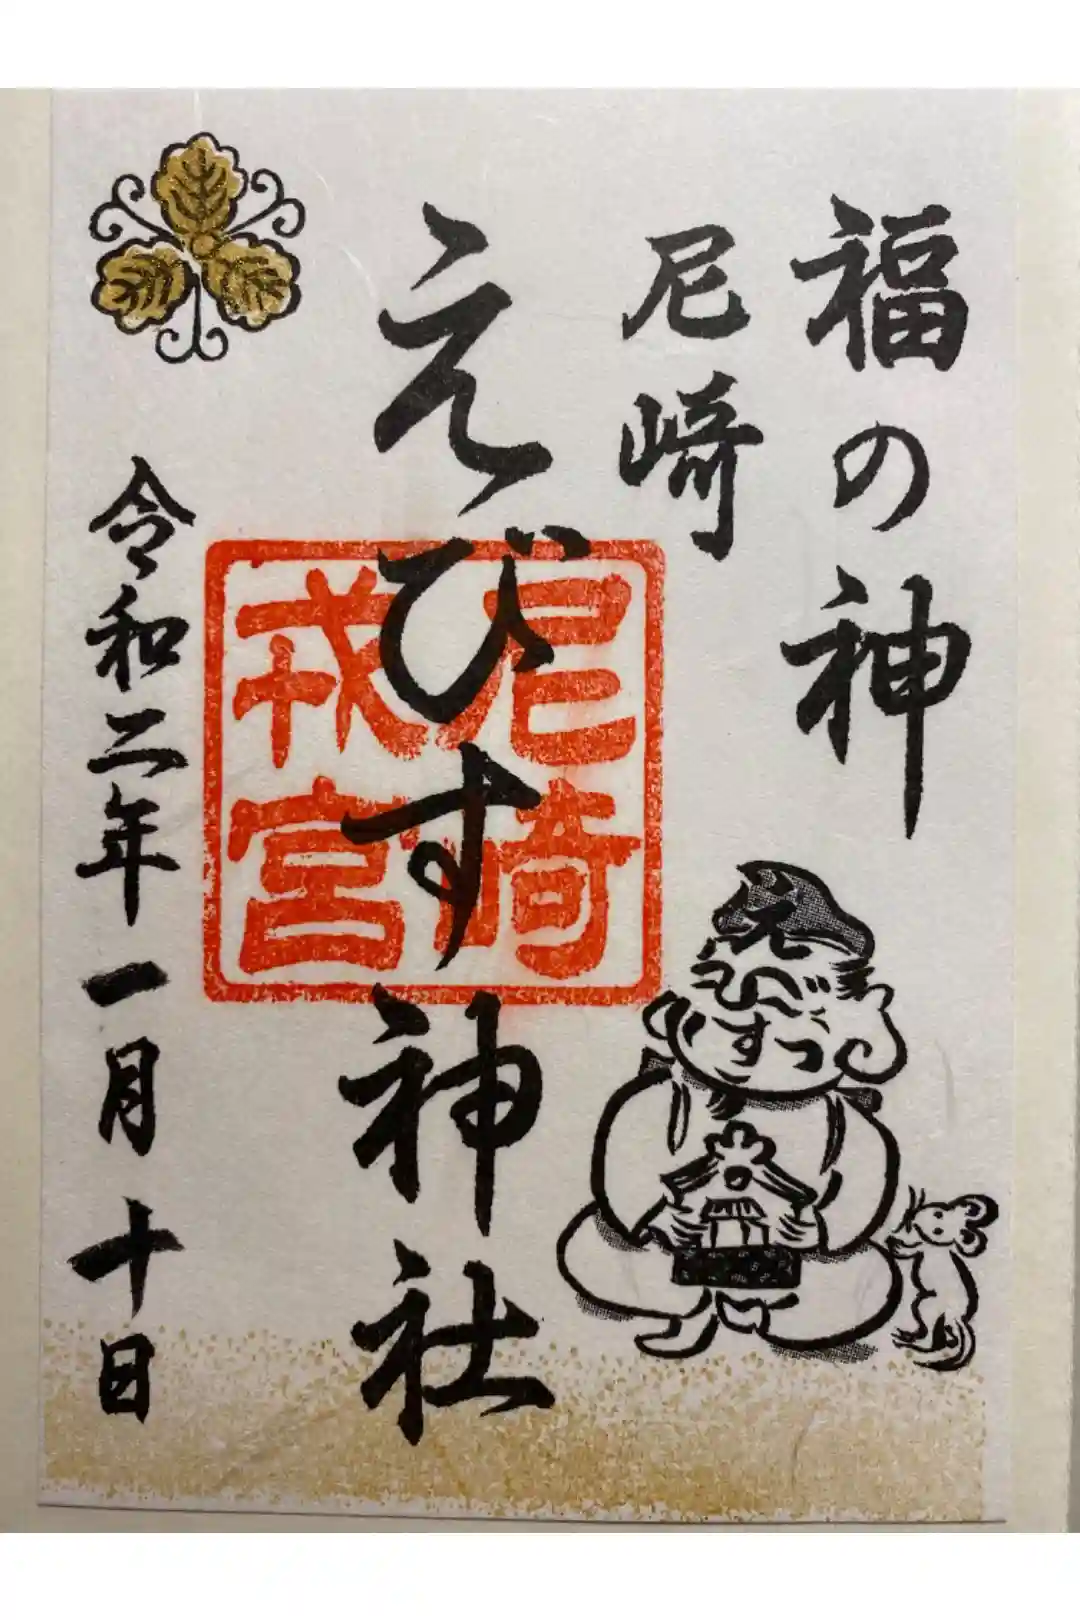 福の神
尼崎
えびす神社
尼崎
戎宮
令和二年一月十日
えべっすつ